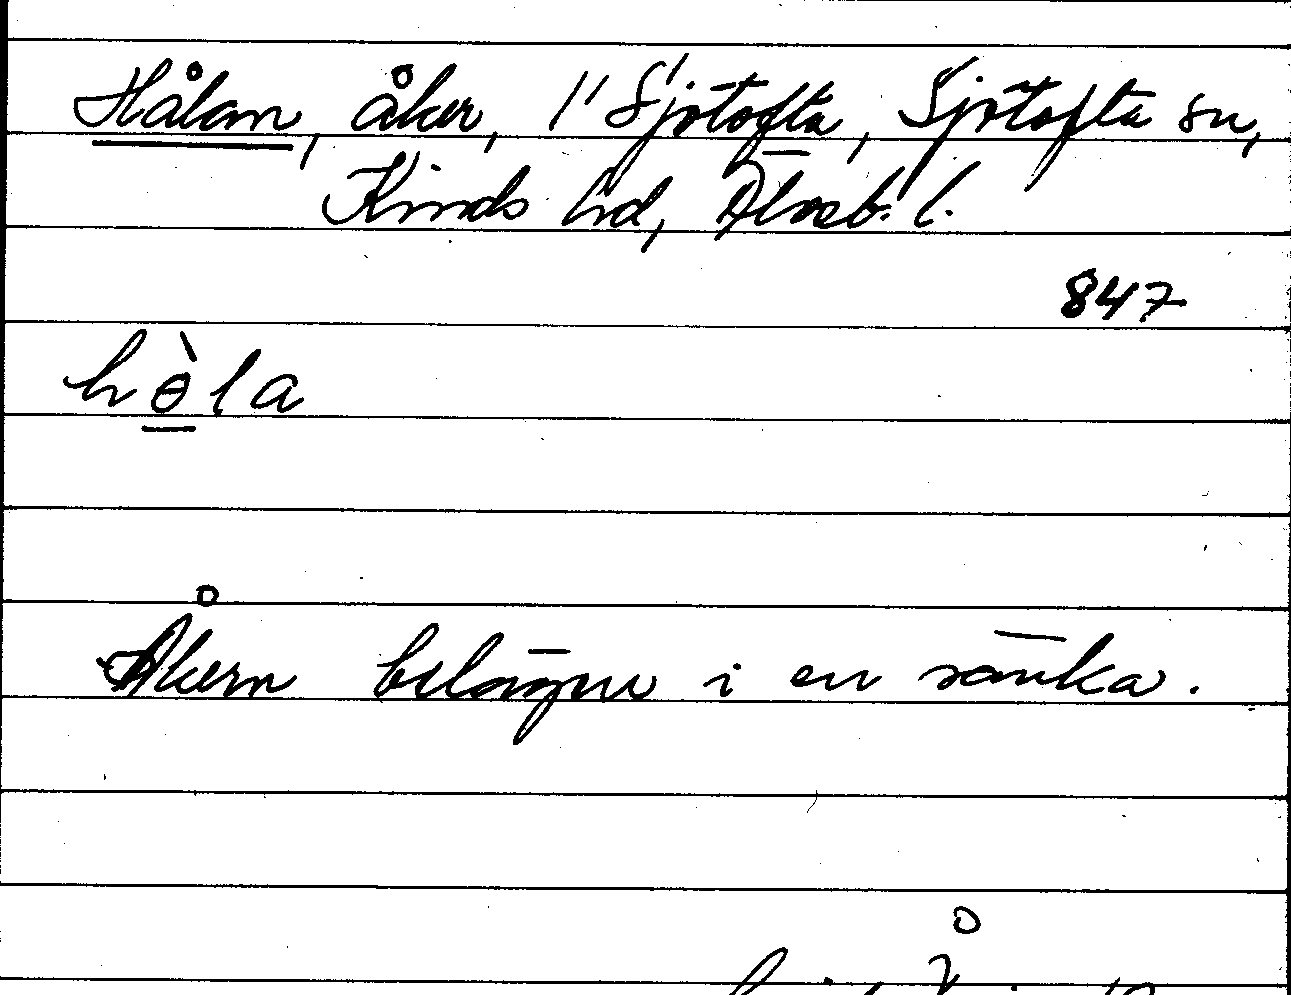 Hålan, åker, 1' Sjötofta, Sjötofta sn,
Kinds hd, Älvsb. l.
847
hɵ̀la
Åkern belägen i en sänka.